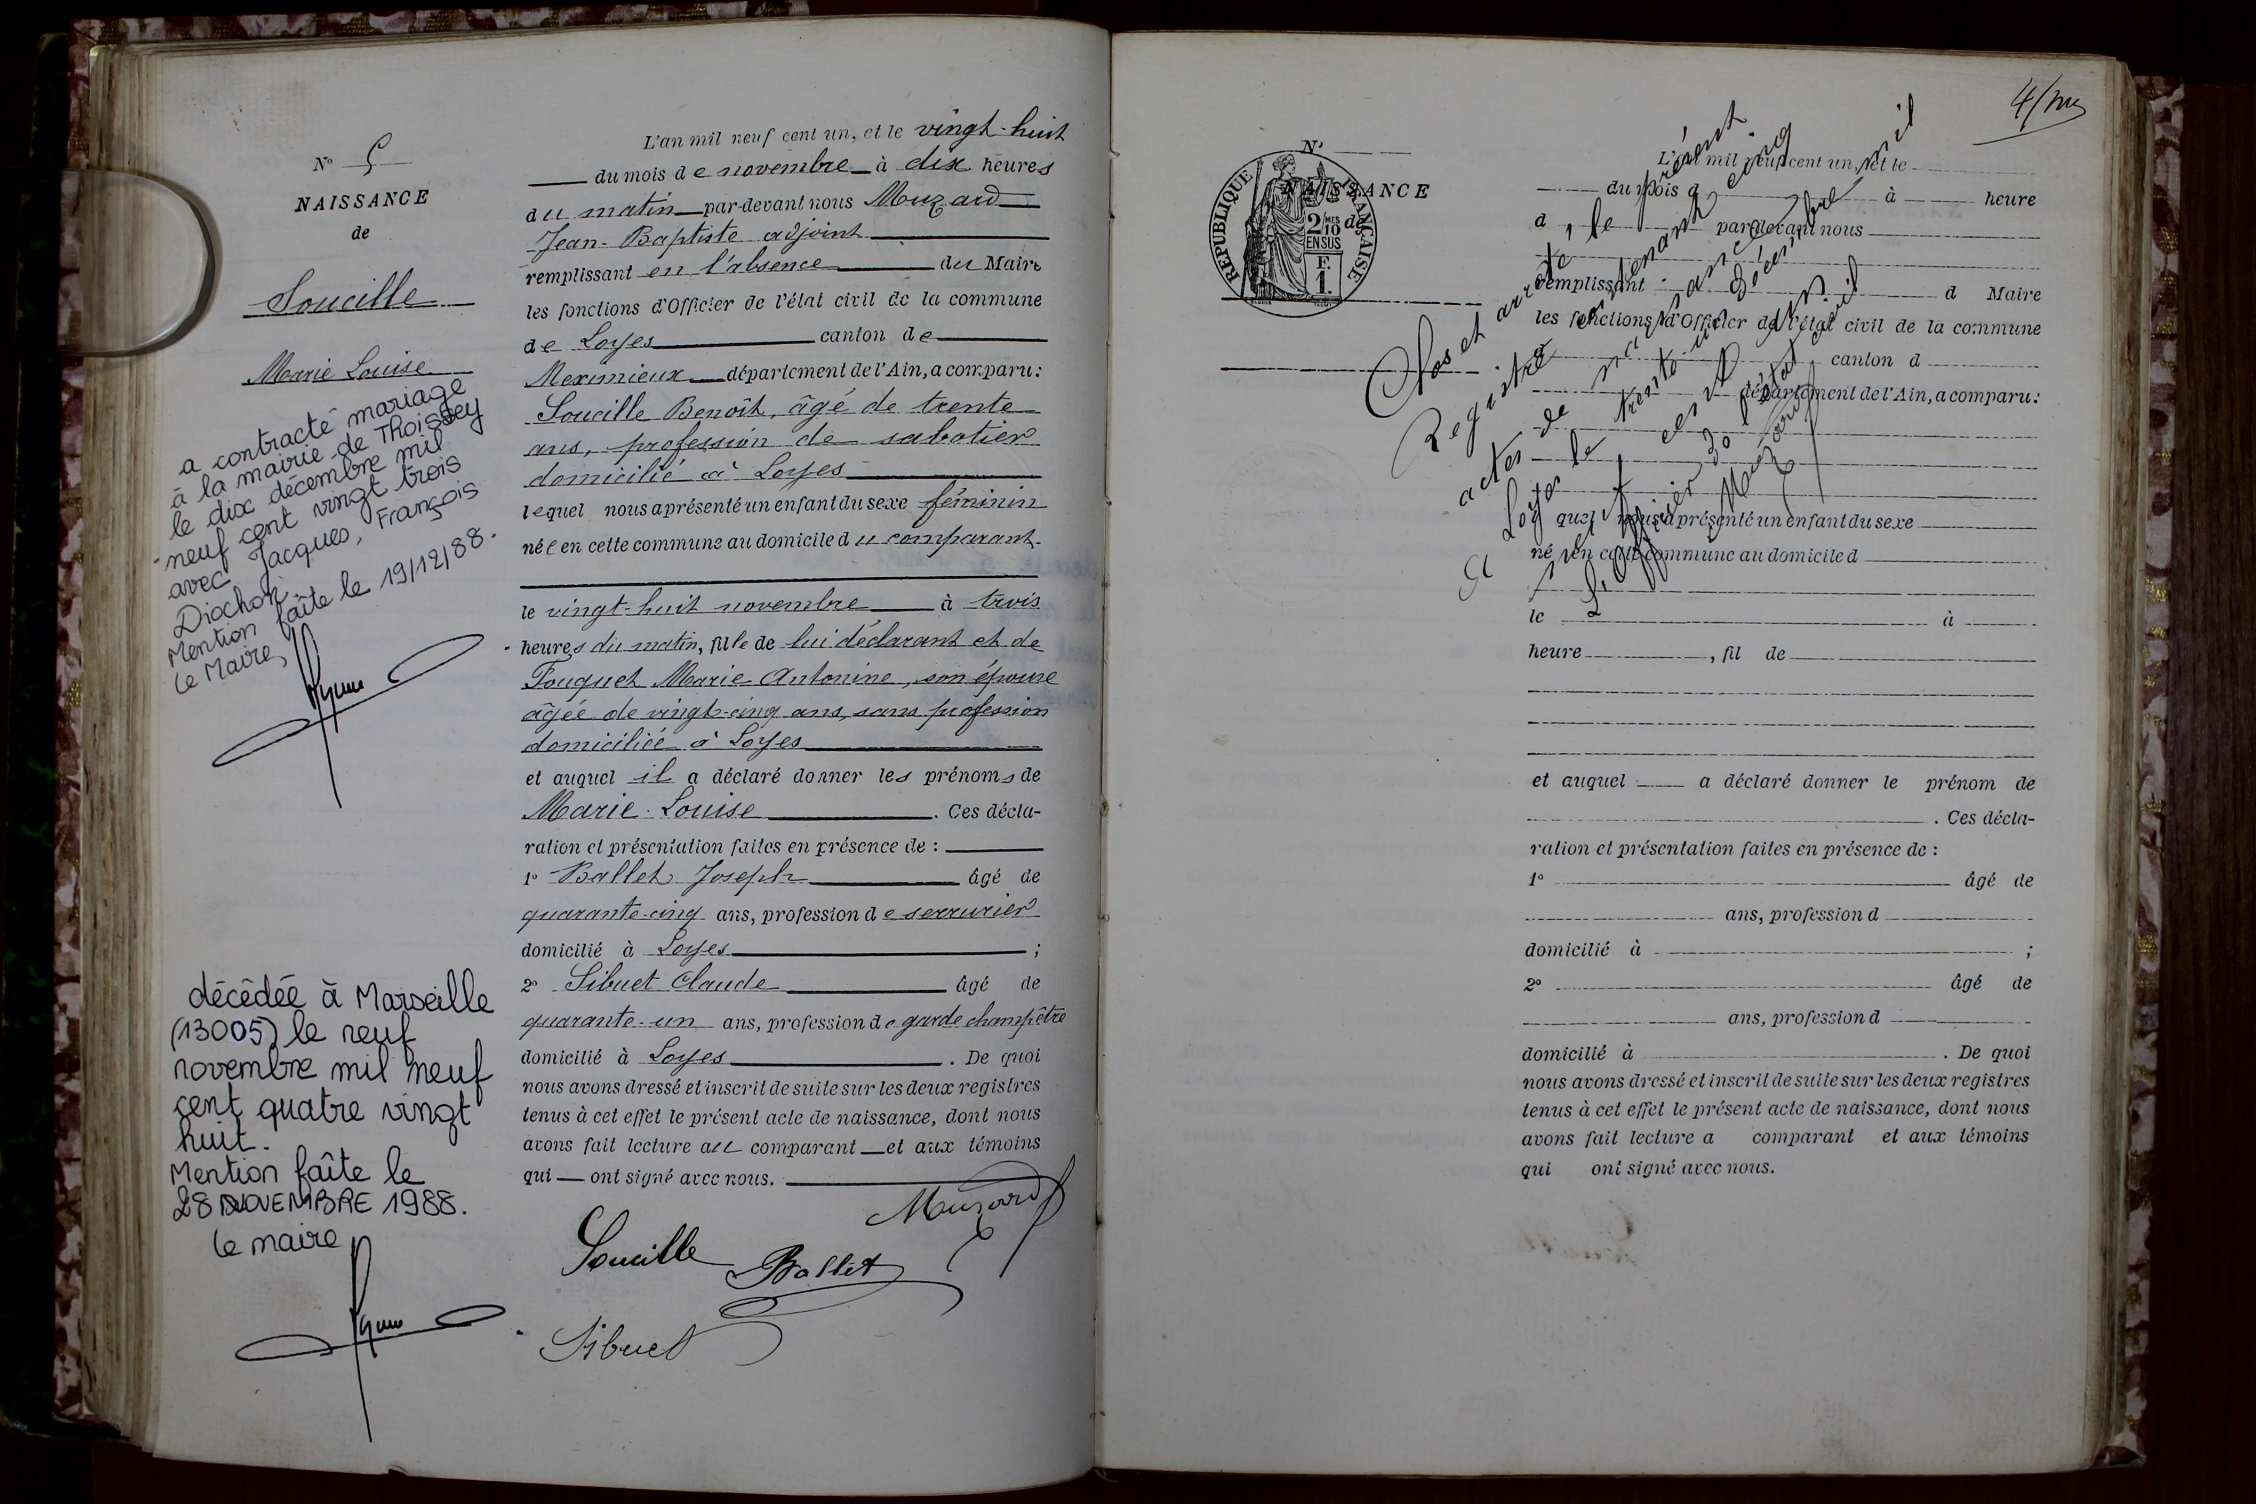 N° 5
NAISSANCE
de
Soucille
Marie Louise
a contracté mariage
à la mairie de Thoissey
le dix décembre mil
neuf cent vingt trois
avec Jacques, François
Diochon.
Mention faîte le 19/12/88.
Le Maire,
décédée à Marseille
(13005) le neuf
novembre mil neuf
cent quatre vingt
huit.
Mention faîte le
28 NOVEMBRE 1988.
Le maire
L'an mil neuf cent un, et le vingt-huit
du mois de novembre à dix heures
du matin par-devant nous Muzard
Jean-Baptiste adjoint
remplissant en l'absence du Maire
les fonctions d'Officier de l'état civil de la commune
de Loyes canton de
Meximieux département de l'Ain, a comparu:
Soucille Benoît, âgé de trente
ans, profession de sabotier
domicilié à Loyes
lequel nous a présenté un enfant du sexe féminin
née en cette commune au domicile du comparant
le vingt-huit novembre à trois
heures du matin, fille de lui déclarant et de
Fouquet Marie-Antonine, son épouse
âgée de vingt-cinq ans, sans profession
domiciliée à Loyes
et auquel il a déclaré donner les prénoms de
Marie-Louise. Ces décla-
ration et présentation faites en présence de :
1° Ballet Joseph âgé de
quarante-cinq ans, profession de serrurier
domicilié à Loyes ;
2° Sibuet Claude âgé de
quarante-un ans, profession de garde champêtre
domicilié à Loyes. De quoi
nous avons dressé et inscrit de suite sur les deux registres
tenus à cet effet le présent acte de naissance, dont nous
avons fait lecture au comparant et aux témoins
qui ont signé avec nous.
Muzard
Soucille Ballet
Sibuet
4/
N°
NAISSANCE
de
RÉPUBLIQUE FRANÇAISE
2/10 EN SUS
F. 1.
L'an mil neuf cent un, et le
du mois d à heure
d par-devant nous
remplissant d Maire
les fonctions d'Officier de l'état civil de la commune
canton d
département de l'Ain, a comparu:
quel nous a présenté un enfant du sexe
né en cette commune au domicile d
le à
heure , fil de
et auquel a déclaré donner le prénom de
. Ces décla-
ration et présentation faites en présence de :
1° âgé de
ans, profession d
domicilié à ;
2° âgé de
ans, profession d
domicilié à . De quoi
nous avons dressé et inscrit de suite sur les deux registres
tenus à cet effet le présent acte de naissance, dont nous
avons fait lecture a comparant et aux témoins
qui ont signé avec nous.
Clos et arrêté, le présent
Registre contenant cinq
actes de naissance
Loyes le trente un décembre mil
neuf cent un.
L'officier de l'état civil
Muzard